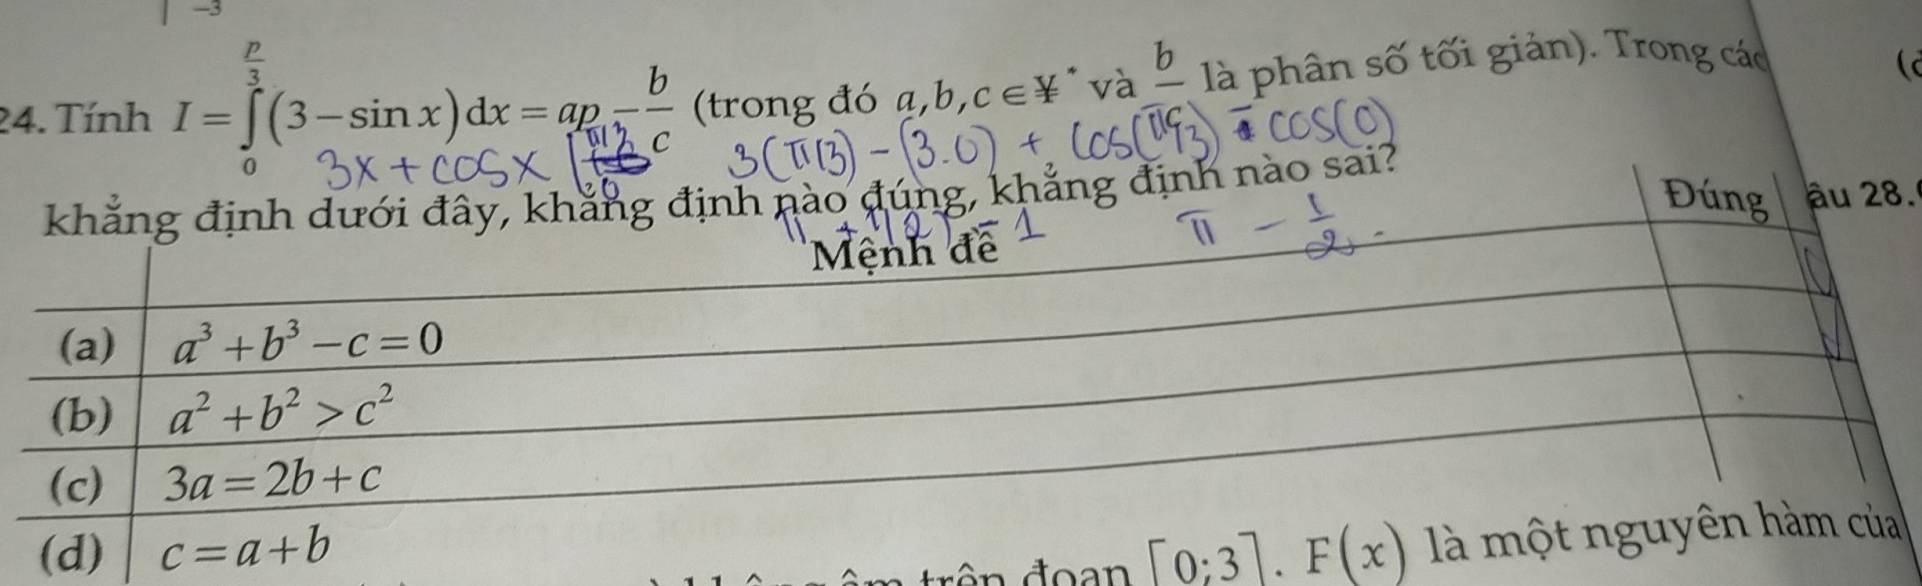 -3
24. Tính $I = \int_0^{\frac{p}{3}} (3 - \sin x) dx = ap - \frac{b}{c}$ (trong đó $a, b, c \in ¥^*$ và $\frac{b}{c}$ là phân số tối giản). Trong các
3x + cosx 3(π/3) - (3.0) + cos(π/3) - cos(0)
khẳng định dưới đây, khẳng định nào đúng, khẳng định nào sai?
π + 1/2 - 1 π - 1/2
Mệnh đề Đúng
âu 28.
(a) $a^3 + b^3 - c = 0$
(b) $a^2 + b^2 > c^2$
(c) $3a = 2b + c$
(d) $c = a + b$
trên đoạn [0;3]. F(x) là một nguyên hàm của